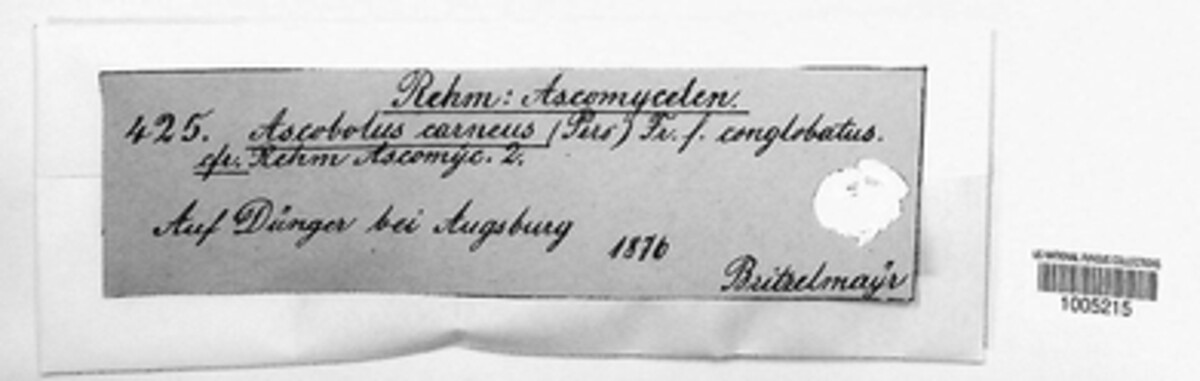 Rehm: Ascomyceten.
425. Ascobolus carneus (Pers) Fr. f. conglobatus.
cfr. Rehm Ascomyc. 2.
Auf Dünger bei Augsburg
1876
Britzelmaÿr
US NATIONAL FUNGUS COLLECTIONS
1005215